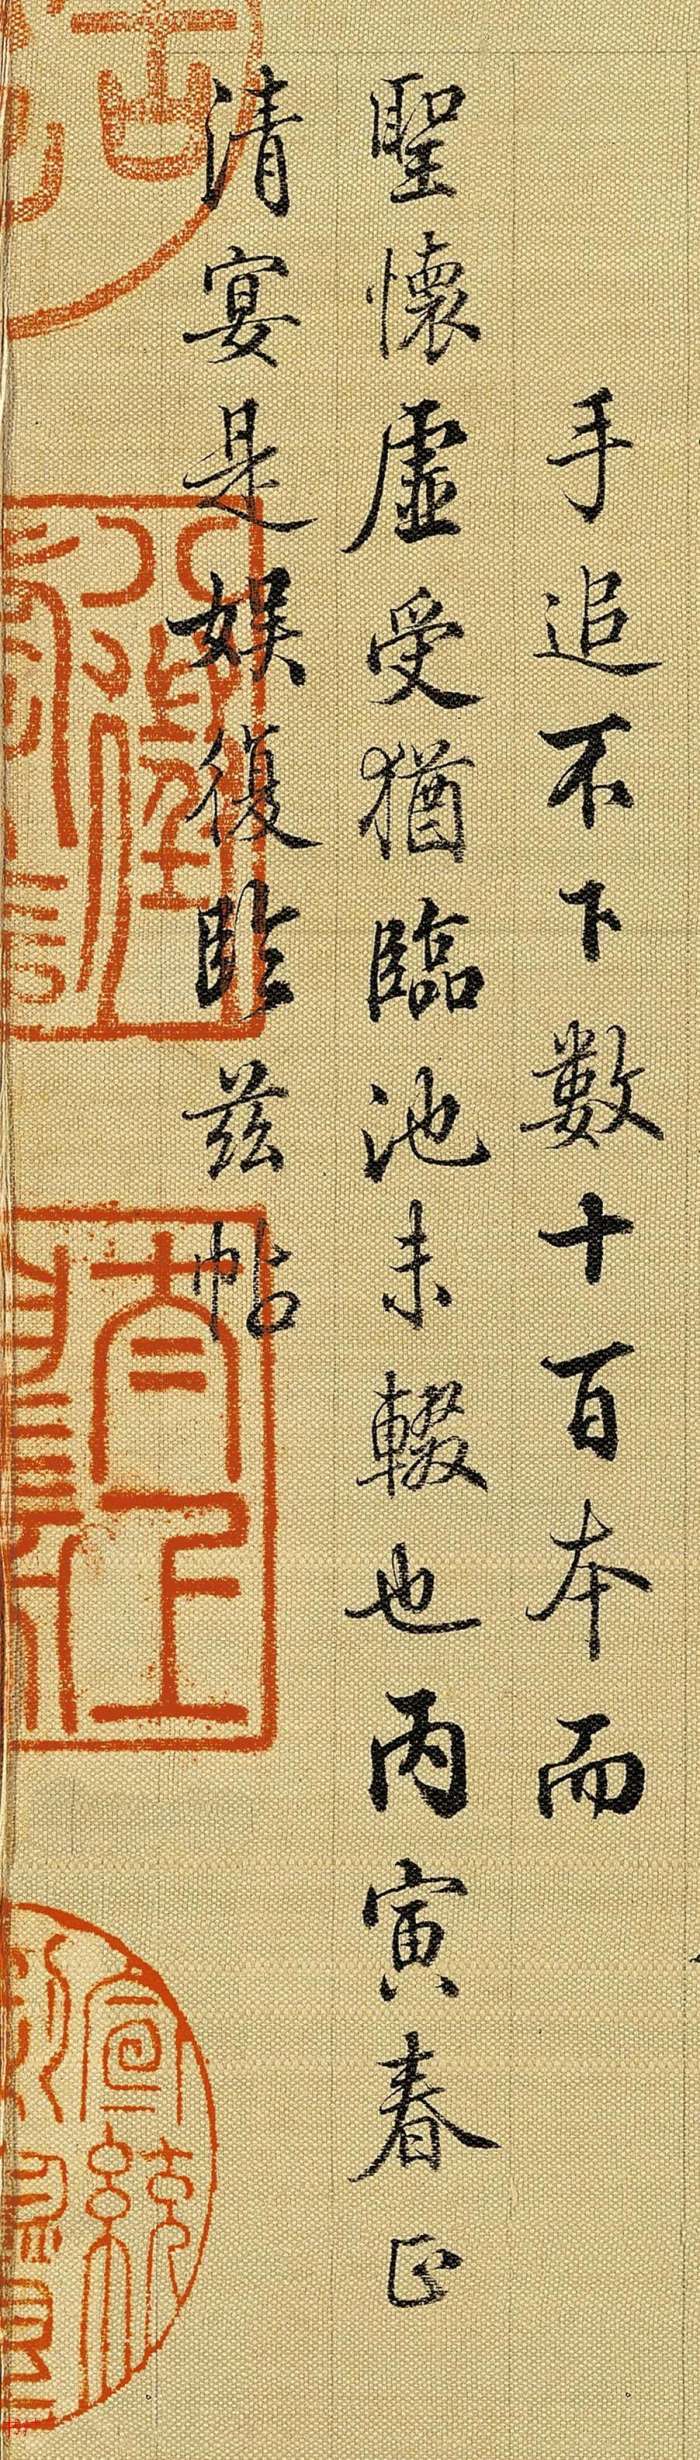 手追不下數十百本而
聖懷虛受猶臨池未輟也丙寅春正
清宴是娱復臨兹帖
太上
宣統